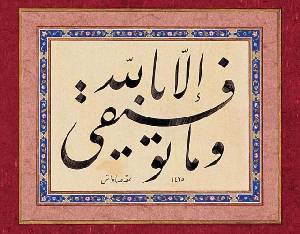 وما توفيقي إلا بالله
١٤٢٥